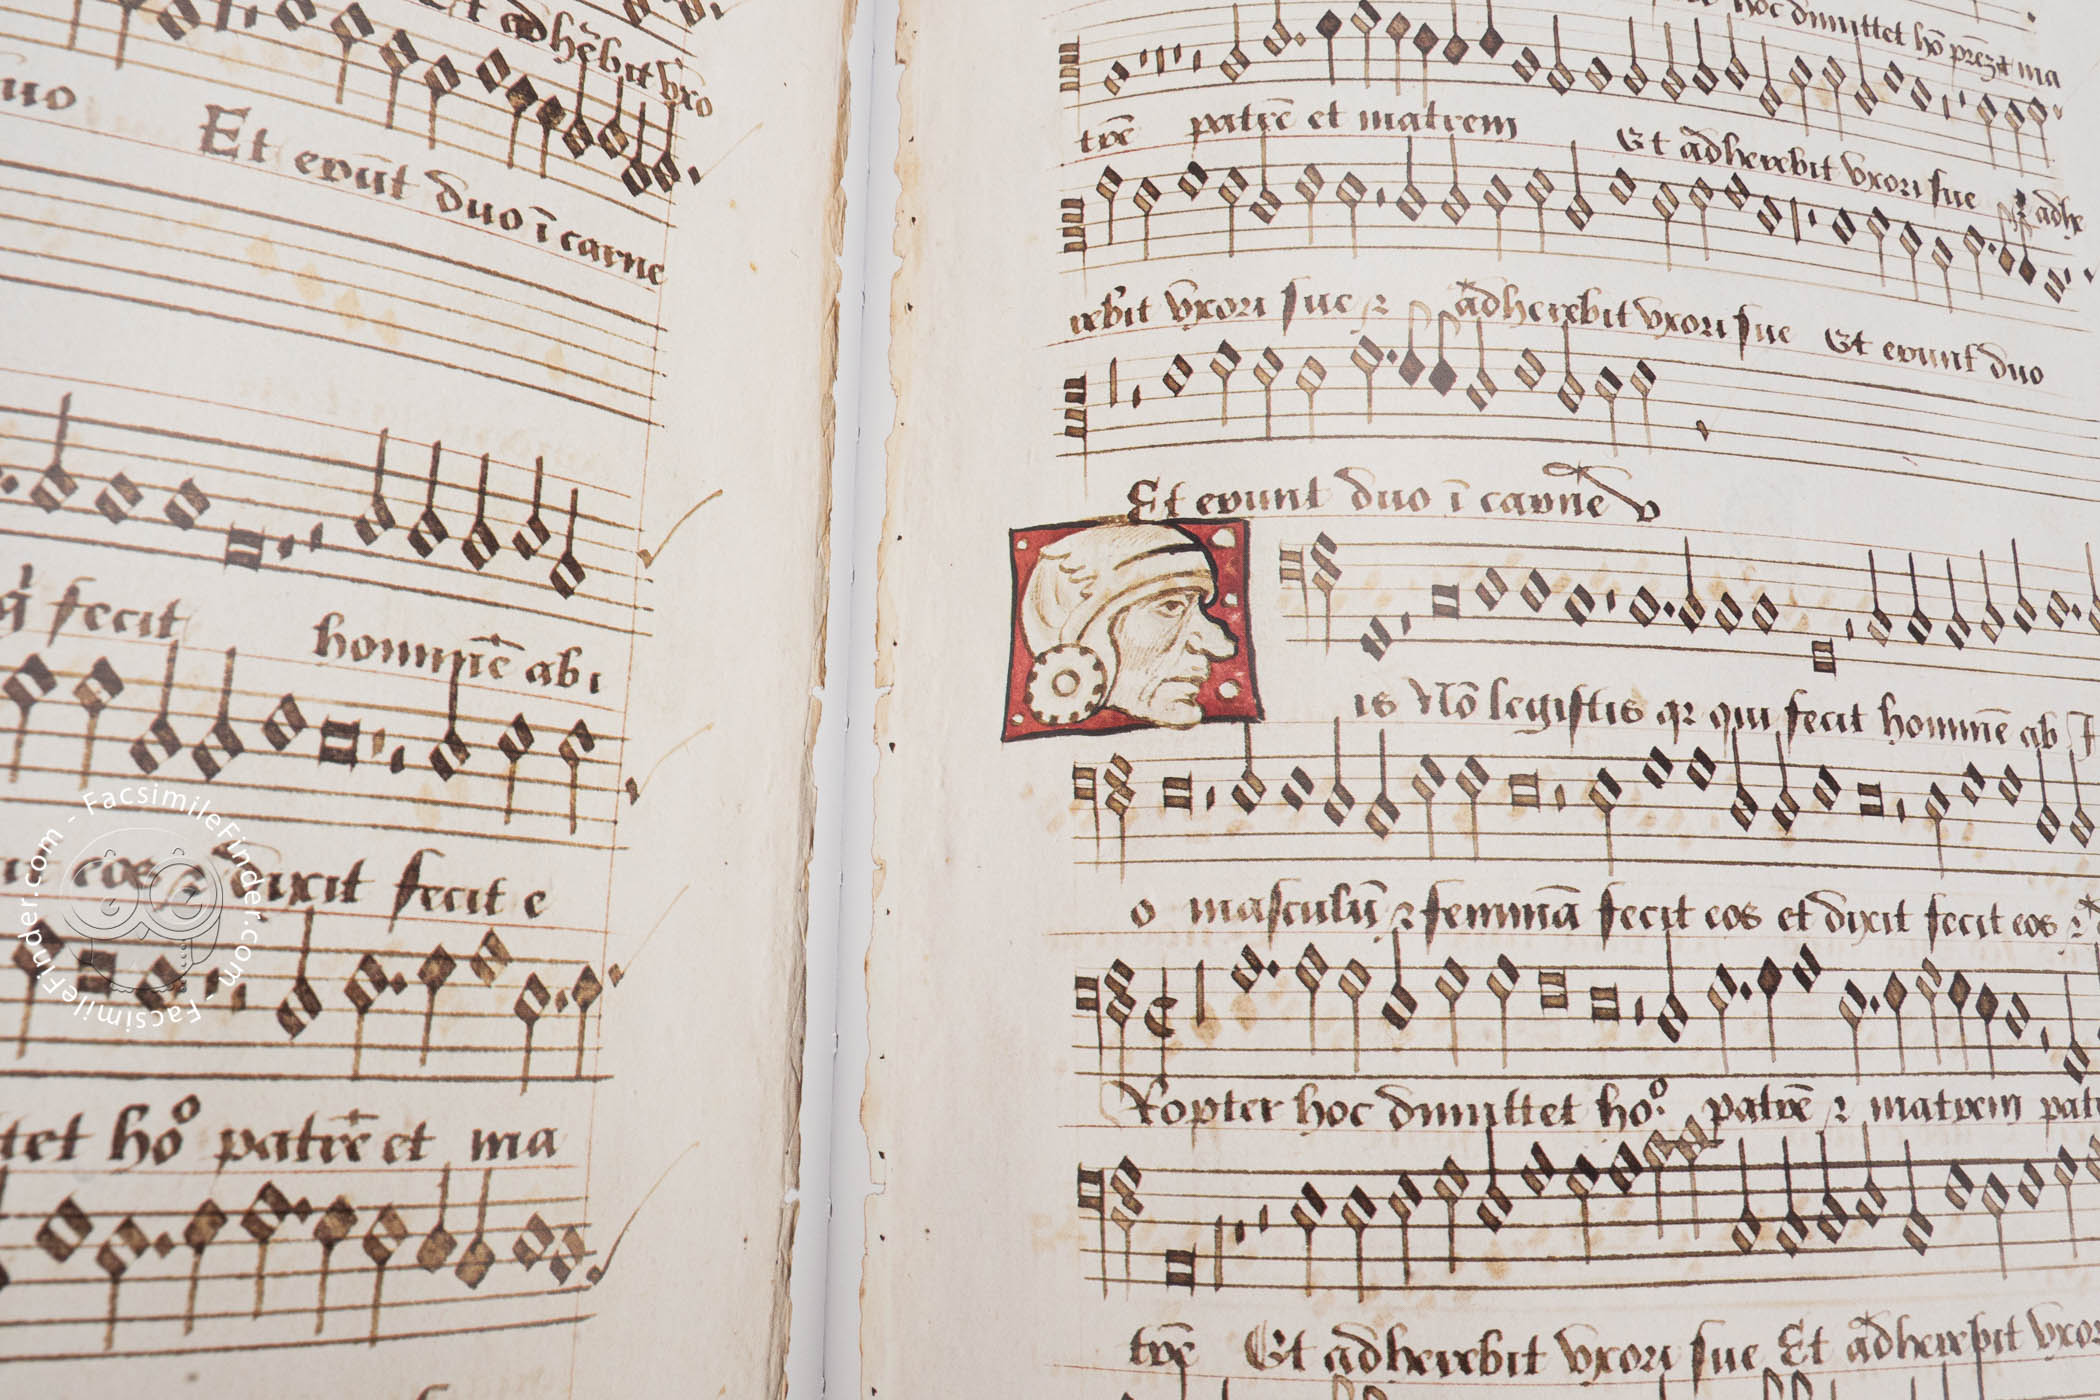 Et adhēbit vxo
uo Et erūt duo ī carne
fecit hominē abi
eos ⁊ dixit fecit e
tet hō patrē et ma
hoc dimittet hō
trē patrē et matrem Et adherebit vxori sue ⁊ adhe
rebit vxori sue ⁊ adherebit vxori sue Et erunt duo
Et erunt duo ī carne
is Nō legistis qꝛ qui fecit hominē ab I
o masculū ⁊ feminā fecit eos et dixit fecit eos ⁊
Propter hoc dimittet hō patrē ⁊ matrem pat
trē Et adherebit vxori sue Et adherebit vxor
FacsimileFinder.com - FacsimileFinder.com - Facsimile